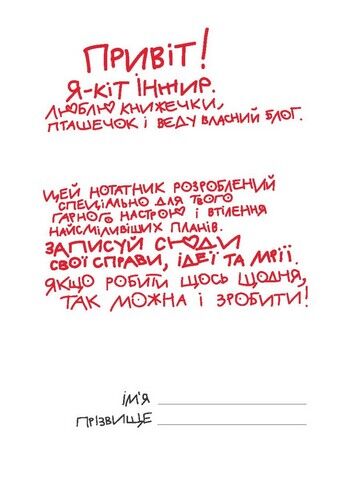 Привіт!
Я-кіт Інжир.
Люблю книжечки,
пташечок і веду власний блог.
Цей нотатник розроблений
спеціально для твого
гарного настрою і втілення
найсміливіших планів.
Записуй сюди
свої справи, ідеї та мрії.
Якщо робити щось щодня,
так можна і зробити!
Ім'я
Прізвище